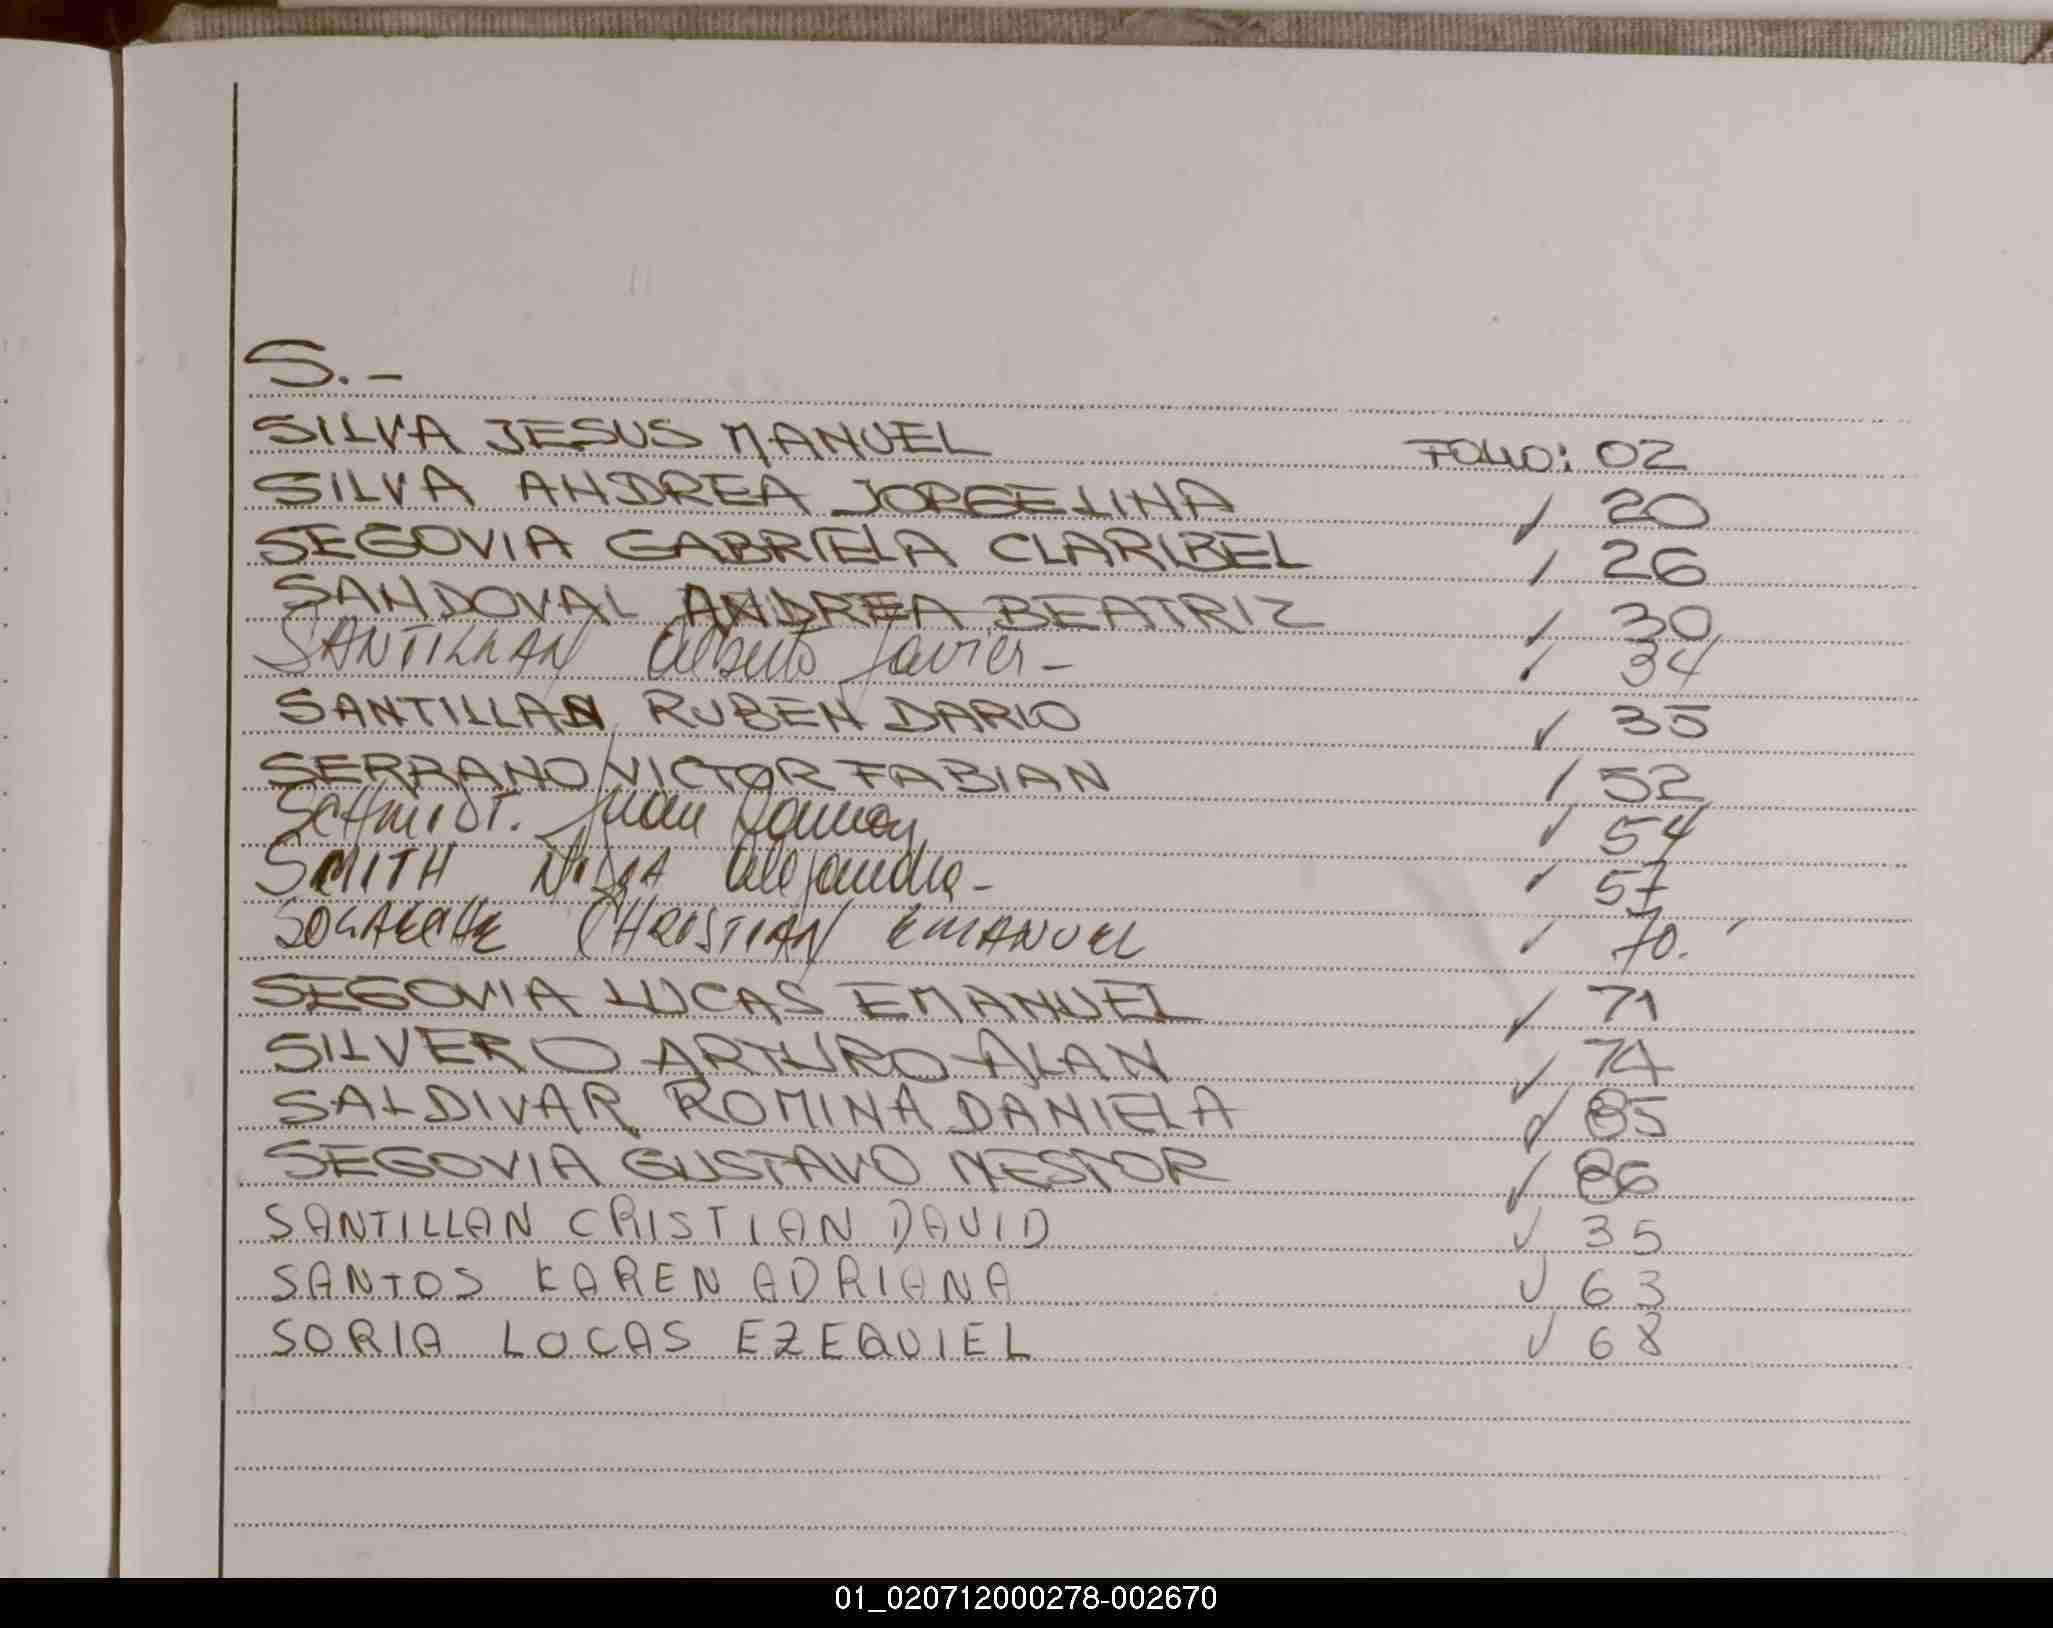 S.-
SILVA JESUS MANUEL FOLIO: 02
SILVA ANDREA JORGELINA ✓ 20
SEGOVIA GABRIELA CLARIBEL ✓ 26
SANDOVAL ANDREA BEATRIZ ✓ 30
SANTILLAN Alberto Javier- ✓ 34
SANTILLAN RUBEN DARIO ✓ 35
SERRANO VICTOR FABIAN ✓ 52
SCHMIDT. Juan ✓ 54
SMITH Alejandra- ✓ 57
CHRISTIAN EMANUEL ✓ 70.
SEGOVIA LUCAS EMANUEL ✓ 71
SILVERO ARTURO ALAN ✓ 74
SALDIVAR ROMINA DANIELA ✓ 85
SEGOVIA GUSTAVO NESTOR ✓ 86
SANTILLAN CRISTIAN DAVID ✓ 35
SANTOS KAREN ADRIANA ✓ 63
SORIA LUCAS EZEQUIEL ✓ 68
01_020712000278-002670